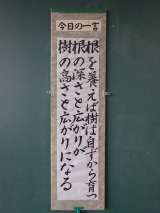 今日の一言
根を養えば樹は自ずから育つ
根の深さと広がりが
樹の高さと広がりになる